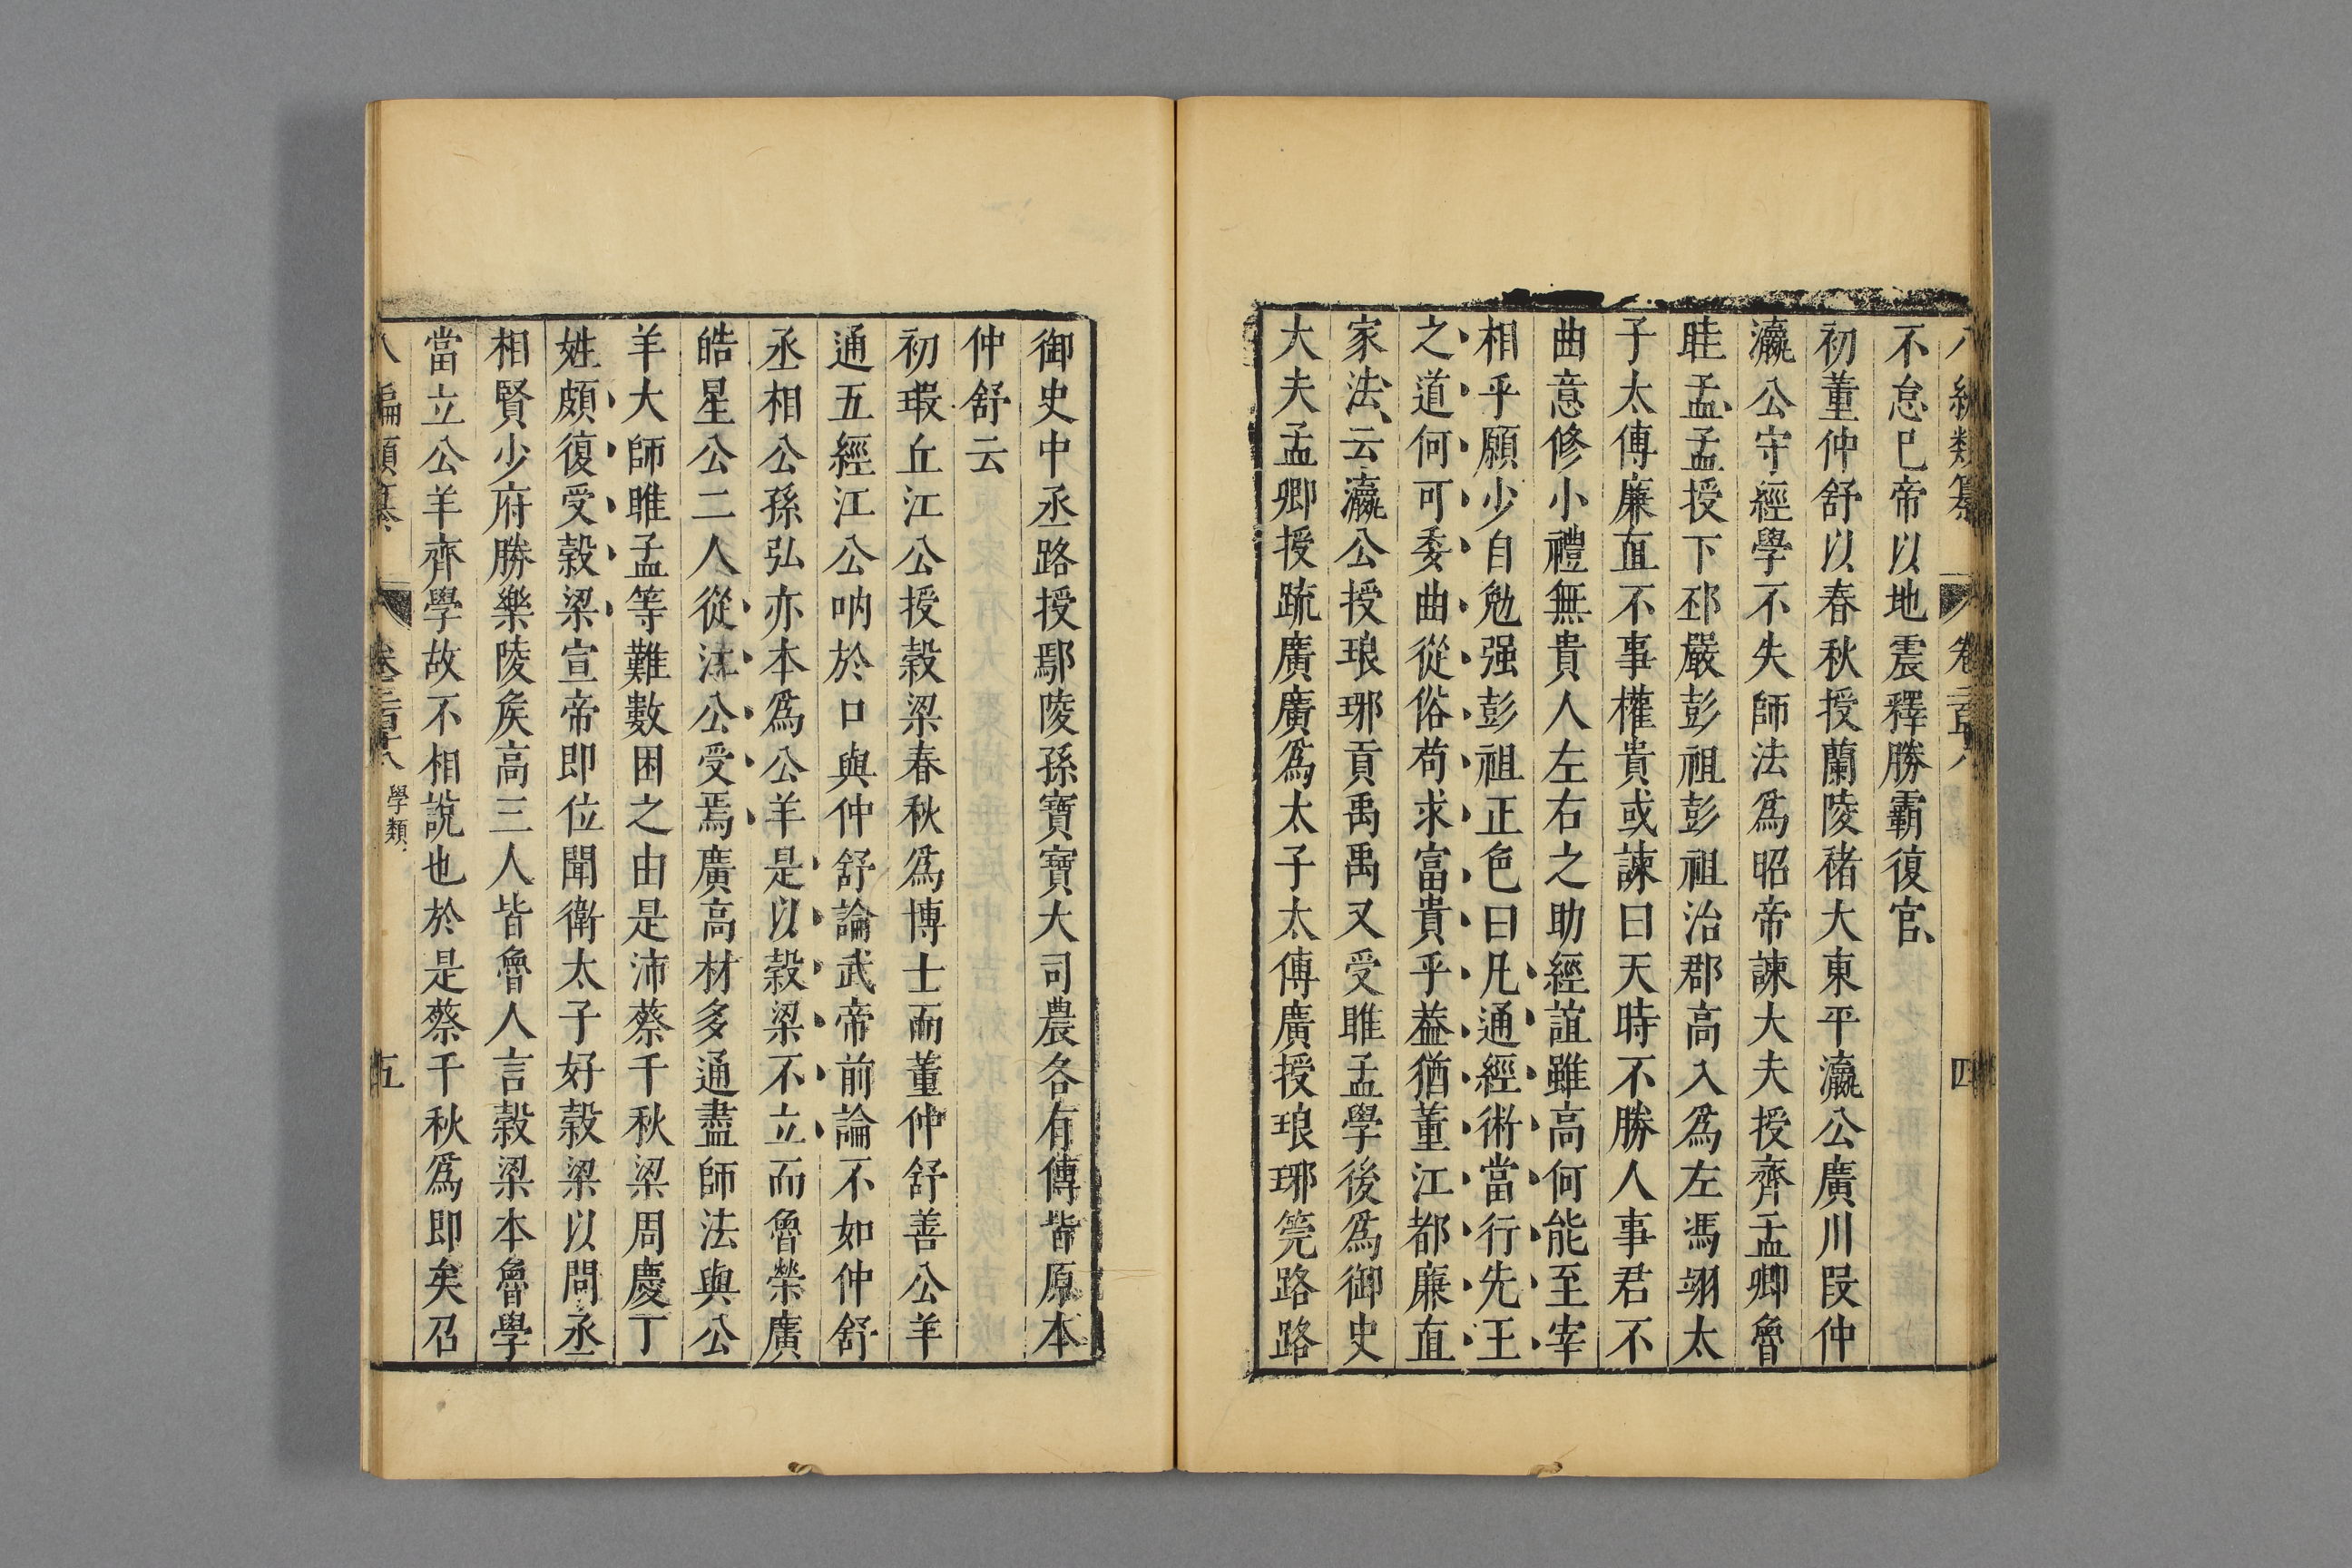 八編類纂 卷二百十八 四
不怠巳帝以地震釋勝霸復官
初董仲舒以春秋授蘭陵禇大東平瀛公廣川段仲
瀛公守經學不失師法爲昭帝諫大夫授齊孟卿魯
眭孟孟授下邳嚴彭祖彭祖治郡高入爲左馮翊太
子太傅廉直不事權貴或諫曰天時不勝人事君不
曲意修小禮無貴人左右之助經誼雖高何能至宰
相乎願少自勉强彭祖正色曰凡通經術當行先王
之道何可委曲從俗苟求富貴乎葢猶董江都廉直
家法云瀛公授琅琊貢禹禹又受睢孟學後爲御史
大夫孟卿授疏廣廣爲太子太傅廣授琅琊筦路路
御史中丞路授鄢陵孫寶寶大司農各有傳皆原本
仲舒云
初瑕丘江公授穀梁春秋爲博士而董仲舒善公羊
通五經江公吶於口與仲舒論武帝前論不如仲舒
丞相公孫弘亦本爲公羊是以穀梁不立而魯榮廣
皓星公二人從江公受焉廣高材多通盡師法與公
羊大師睢孟等難數困之由是沛蔡千秋梁周慶丁
姓頗復受穀梁宣帝即位聞衛太子好穀梁以問丞
相賢少府勝樂陵矦高三人皆魯人言穀梁本魯學
當立公羊齊學故不相說也於是蔡千秋爲郎矣召
八編類纂 卷二百十八 學類 五